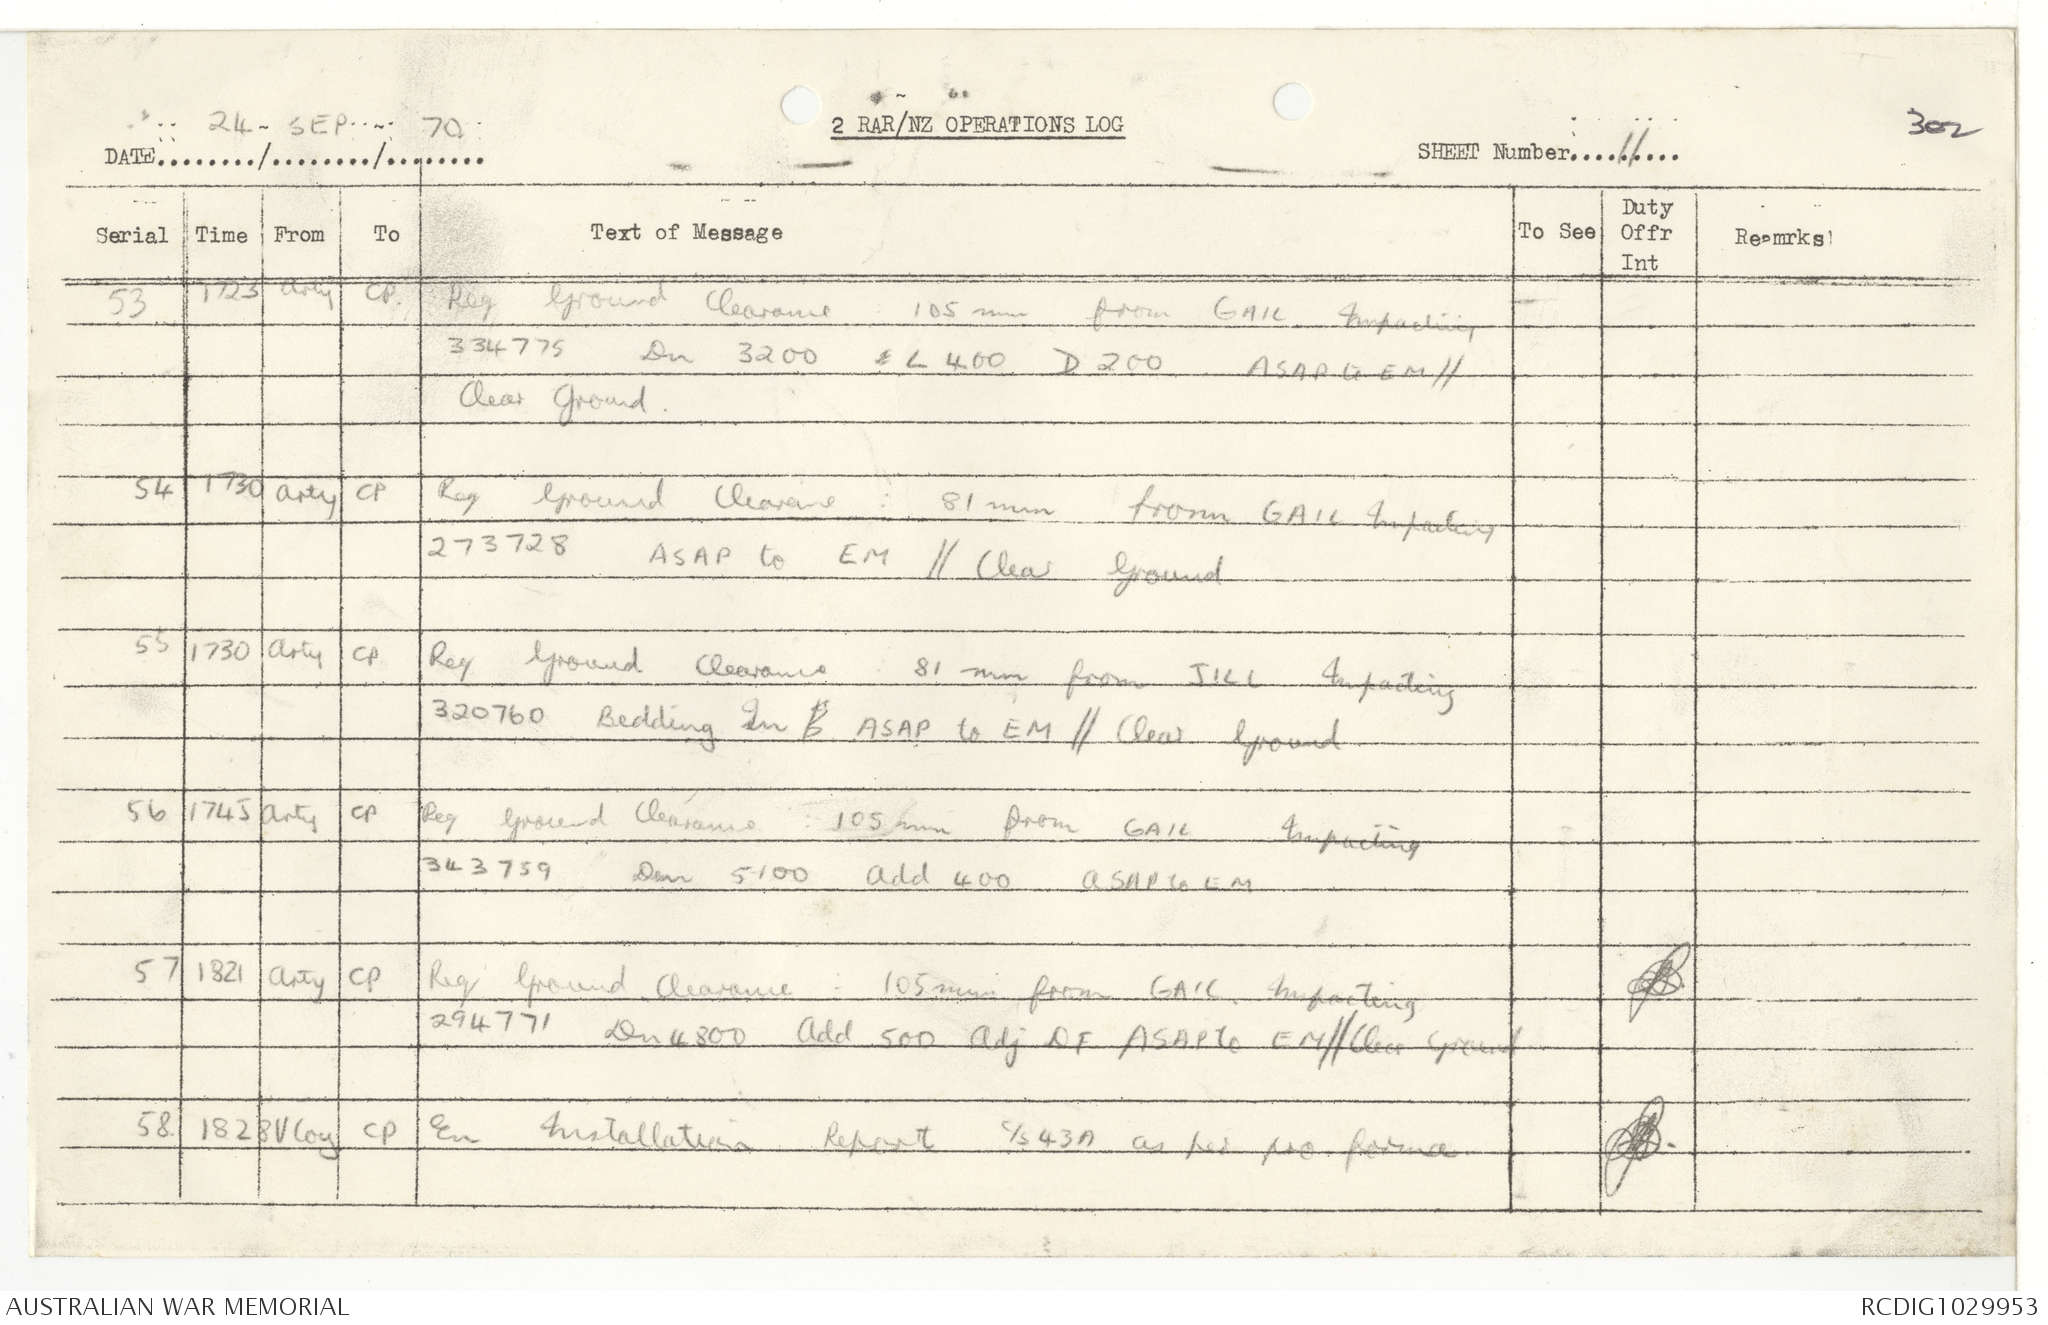 302
24 SEP 70
2 RAR/NZ OPERATIONS LOG
DATE......../......../........
SHEET Number.....11....
Serial Time From To Text of Message To See Duty Offr Int Remrks
53 1723 Arty CP. Req Ground Clearance : 105 mm from GAIL Impacting
334775 Dn 3200 L 400 D 200 ASAP to EM//
Clear Ground.
54 1730 Arty CP Req Ground Clearance : 81 mm from GAIL Impacting
273728 ASAP to EM // Clear Ground
55 1730 Arty CP Req Ground Clearance : 81 mm from JILL Impacting
320760 Bedding In ASAP to EM // Clear Ground
56 1745 Arty CP Req Ground Clearance : 105 mm from GAIL Impacting
343759 Dn 5100 Add 400 ASAP to EM
57 1821 Arty CP Req Ground Clearance : 105 mm from GAIL Impacting
294771 Dn 4800 Add 500 Adj DF ASAP to EM//Clear Ground
58. 1828 V Coy CP En Installation Report C/S 43A as per pro forma
AUSTRALIAN WAR MEMORIAL
RCDIG1029953